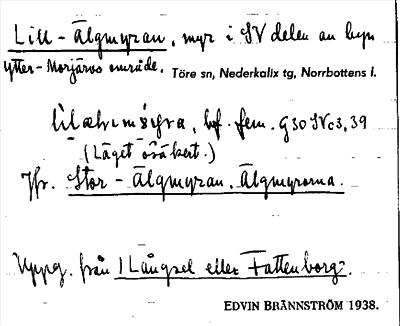 Lill-Älgmyran, myr i SV delen av byn
Ytter-Morjärvs område. Töre sn, Nederkalix tg, Norrbottens l.
bf. fem. G30SVc3,39
(Läget osäkert.)
Jfr. Stor-Älgmyran, Älgmyrorna.
Uppg. från 1 Långsel eller Fattenborg
EDVIN BRÄNNSTRÖM 1938.